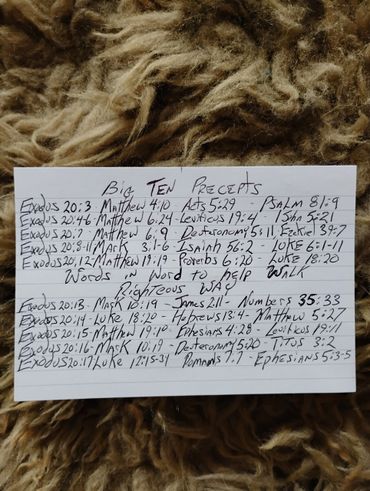 Big Ten Precepts
Exodus 20:3 - Matthew 4:10 - Acts 5:29 - Psalm 81:9
Exodus 20:4-6 - Matthew 6:24 - Leviticus 19:4 - 1 John 5:21
Exodus 20:7 - Matthew 6,9 - Deuteronomy 5:11 - Ezekiel 39:7
Exodus 20:8-11 - Mark 3:1-6 - Isaiah 56:2 - Luke 6:1-11
Exodus 20:12 - Matthew 19:19 - Proverbs 6:20 - Luke 18:20
Words in Word to help Walk
Righteous Way
Exodus 20:13 - Mark 10:19 - James 2:11 - Numbers 35:33
Exodus 20:14 - Luke 18:20 - Hebrews 13:4 - Matthew 5:27
Exodus 20:15 - Matthew 19:18 - Ephesians 4:28 - Leviticus 19:11
Exodus 20:16 - Mark 10:19 - Deuteronomy 5:20 - Titus 3:2
Exodus 20:17 Luke 12:15-31 Romans 7:7 - Ephesians 5:3-5